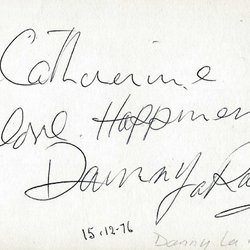 Catherine
love. Happines
Danny
15-12-76
Danny La